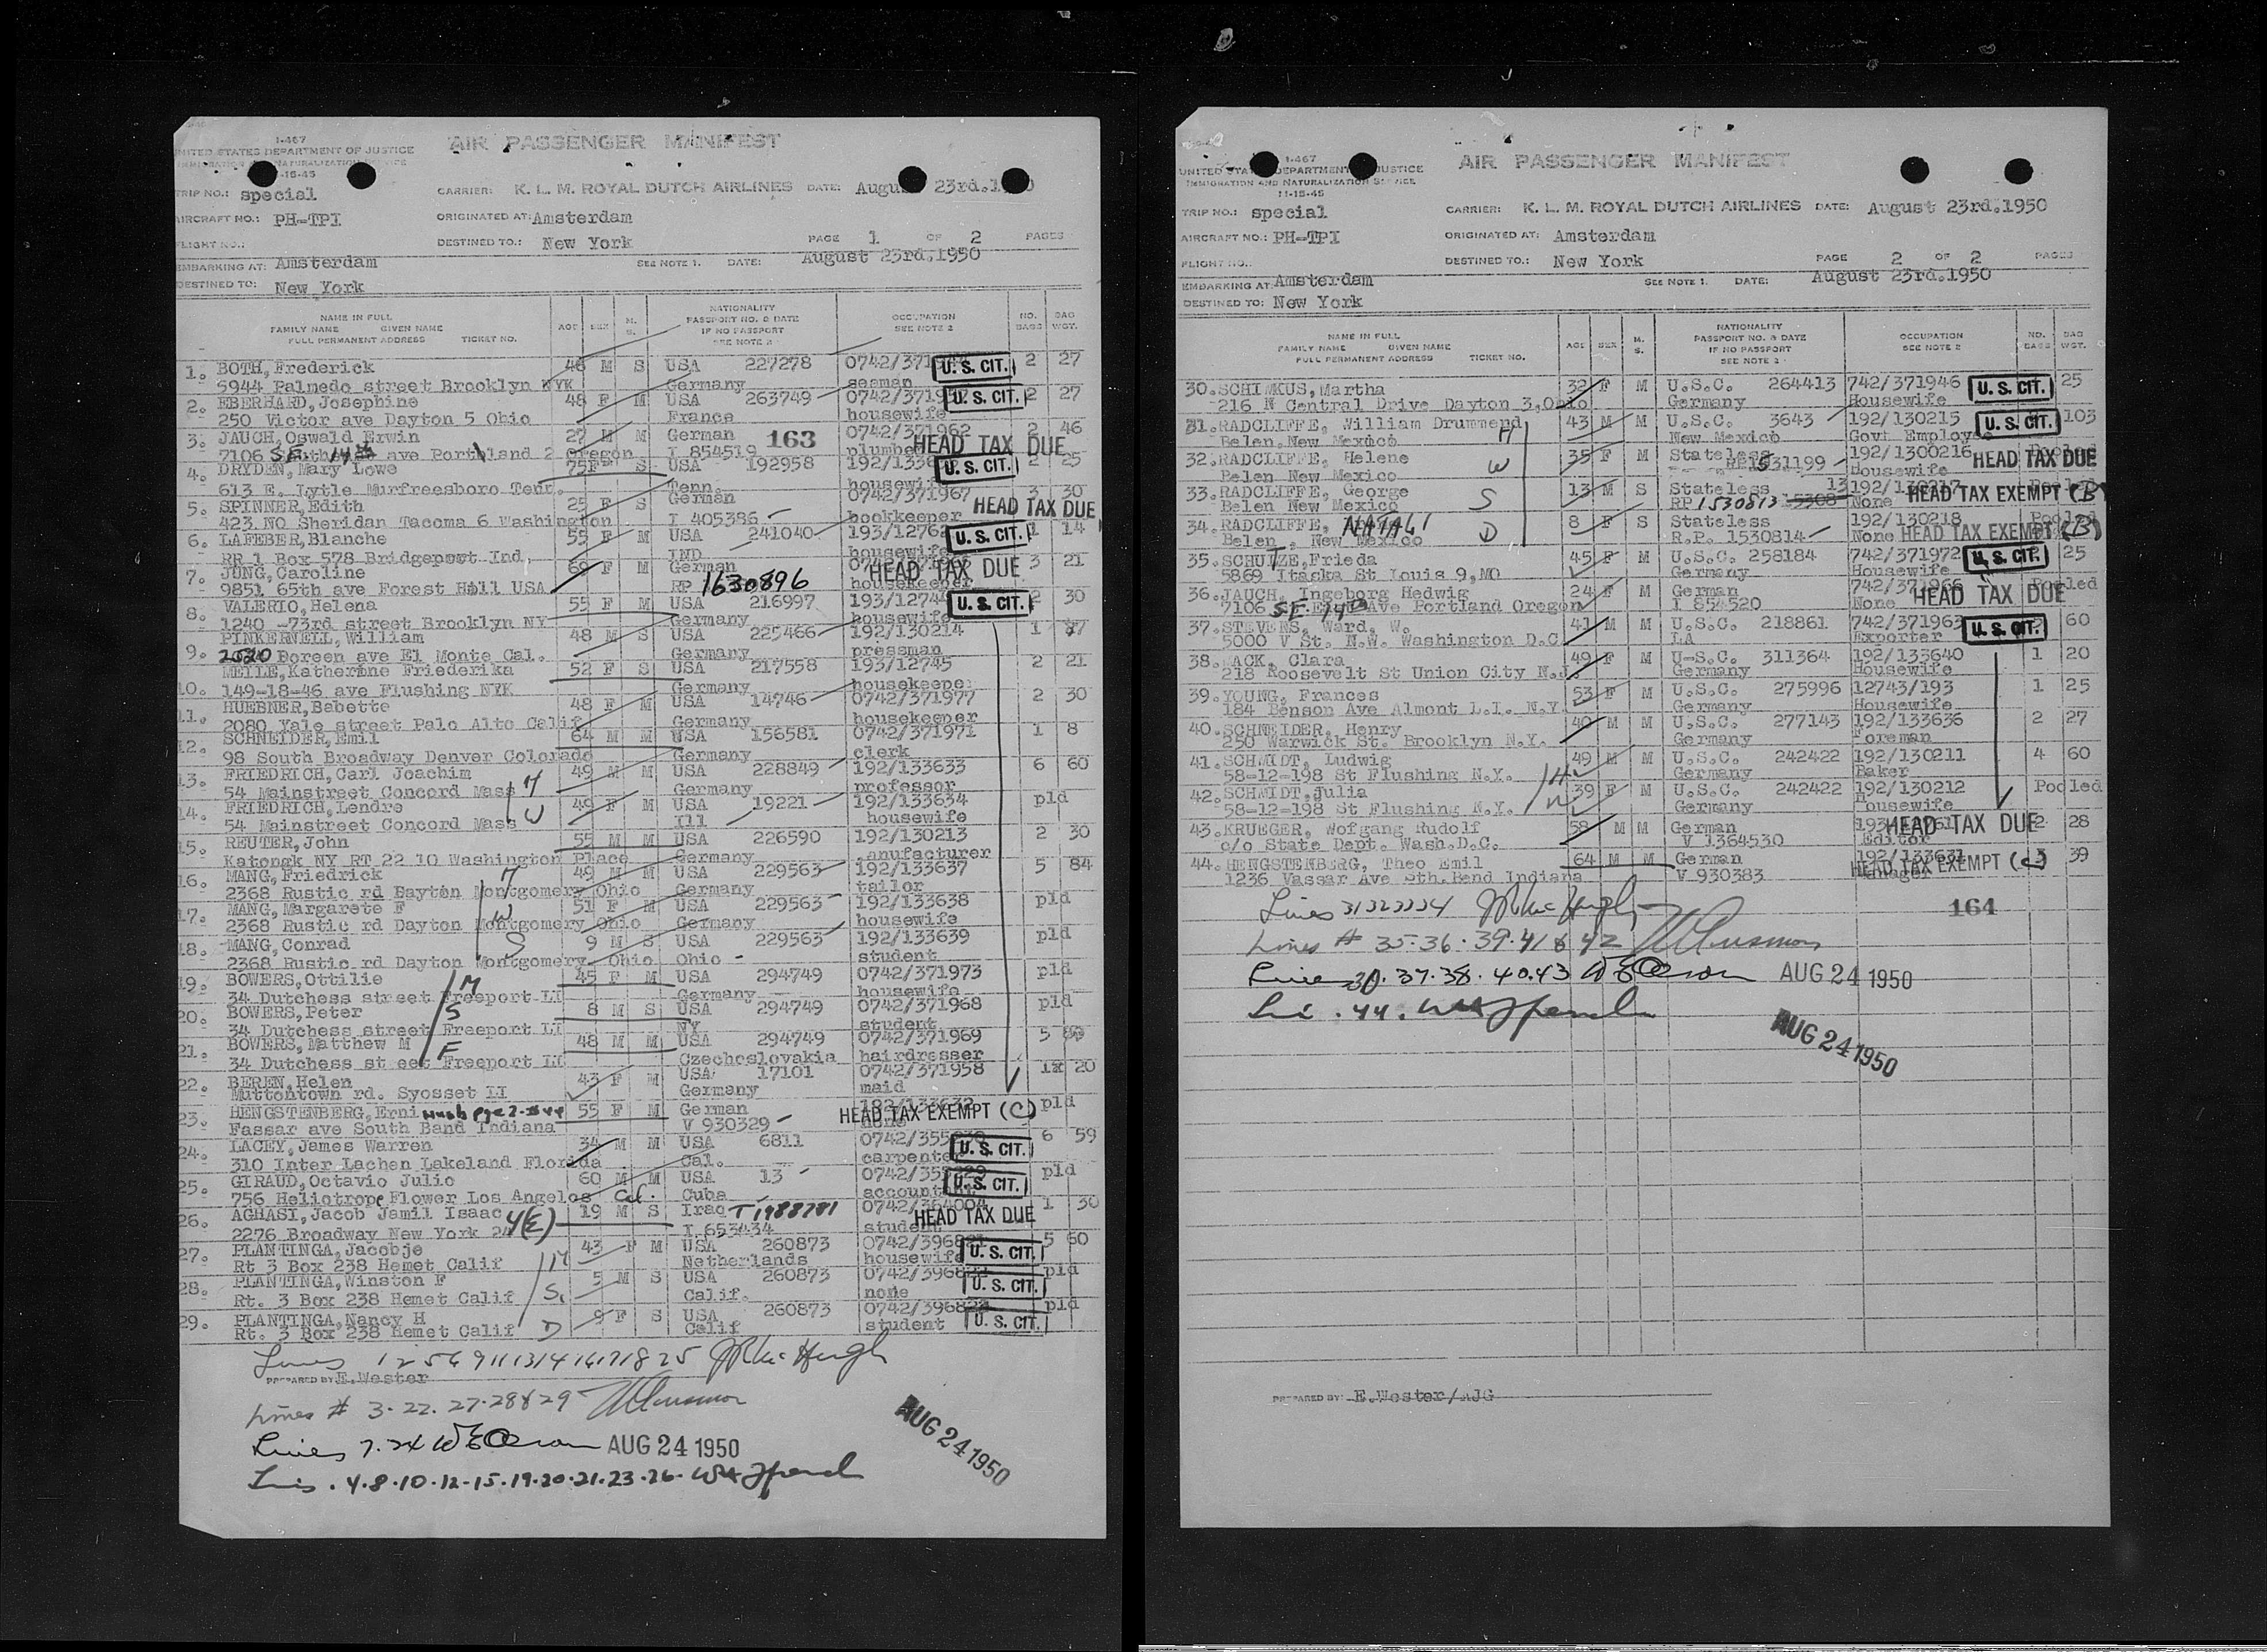 I-467
UNITED STATES DEPARTMENT OF JUSTICE
AIR PASSENGER MANIFEST
TRIP NO.: special CARRIER: K. L. M. ROYAL DUTCH AIRLINES DATE: August 23rd.1
AIRCRAFT NO.: PH-TPI ORIGINATED AT: Amsterdam
FLIGHT NO.: DESTINED TO.: New York PAGE 1 OF 2 PAGES
EMBARKING AT: Amsterdam SEE NOTE 1. DATE: August 23rd.1950
DESTINED TO: New York
NAME IN FULL
FAMILY NAME GIVEN NAME
FULL PERMANENT ADDRESS TICKET NO.
AGE SEX M. S.
NATIONALITY
PASSPORT NO. & DATE
IF NO PASSPORT
SEE NOTE 2
OCCUPATION
SEE NOTE 2
NO. BAGS
BAG WGT.
1. BOTH, Frederick 46 M S USA 227278 0742/371 U. S. CIT. 2 27
5944 Palmedo street Brooklyn NYK Germany seaman
2. EBERHARD, Josephine 48 F M USA 263749 0742/3719 U. S. CIT. 2 27
250 Victor ave Dayton 5 Ohio France housewife
3. JAUCH, Oswald Erwin 27 M M German 163 0742/371962 2 46
7106 S.E. 14th ave Portland 2 Oregon I 854519 plumber HEAD TAX DUE
4. DRYDEN, Mary Lowe 75 F S USA 192958 192/133 U. S. CIT. 2 25
613 E. Lytle Murfreesboro Tenn. Tenn. housewife
5. SPINNER, Edith 25 F S German 0742/371967 3 30
423 NO Sheridan Tacoma 6 Washington I 405386 bookkeeper HEAD TAX DUE
6. LAFEBER, Blanche 55 F M USA 241040 193/1276 U. S. CIT. 1 14
RR 1 Box 578 Bridgeport Ind IND housewife
7. JUNG, Caroline 69 F M German HEAD TAX DUE 3 21
9851 65th ave Forest Hill USA RP 1630896 housekeeper
8. VALERIO, Helena 55 F M USA 216997 193/1274 U. S. CIT. 2 30
1240 -73rd street Brooklyn NY Germany housewife
9. PINKERNELL, William 48 M S USA 225466 192/130214 1 77
2520 Doreen ave El Monte Cal. Germany pressman
10. MEILE, Katherine Friederika 52 F S USA 217558 193/12745 2 21
149-18-46 ave Flushing NYK Germany housekeeper
11. HUEBNER, Babette 48 F M USA 14746 0742/371977 2 30
2080 Yale street Palo Alto Calif Germany housekeeper
12. SCHNEIDER, Emil 64 M M USA 156581 0742/371971 1 8
98 South Broadway Denver Colorado Germany clerk
13. FRIEDRICH, Carl Joachim H 49 M M USA 228849 192/133633 6 60
54 Mainstreet Concord Mass Germany professor
14. FRIEDRICH, Lendre W 49 F M USA 19221 192/133634 pld
54 Mainstreet Concord Mass Ill housewife
15. REUTER, John 55 M M USA 226590 192/130213 2 30
Katonak NY RT 22 10 Washington Place Germany manufacturer
16. MANG, Friedrick H 49 M M USA 229563 192/133637 5 84
2368 Rustic rd Dayton Montgomery Ohio Germany tailor
17. MANG, Margarete F W 51 F M USA 229563 192/133638 pld
2368 Rustic rd Dayton Montgomery Ohio Germany housewife
18. MANG, Conrad S 9 M S USA 229563 192/133639 pld
2368 Rustic rd Dayton Montgomery Ohio Ohio student
19. BOWERS, Ottilie M 45 F M USA 294749 0742/371973 pld
34 Dutchess street Freeport LI Germany housewife
20. BOWERS, Peter S 8 M S USA 294749 0742/371968 pld
34 Dutchess street Freeport LI NY student
21. BOWERS, Matthew M F 48 M M USA 294749 0742/371969 5 89
34 Dutchess st eet Freeport LI Czechoslovakia hairdresser
22. BEREN, Helen 43 F M USA 17101 0742/371958 1x 20
Muttontown rd. Syosset LI Germany maid
23. HENGSTENBERG, Erni 55 F M German 192/133632 pld
Fassar ave South Band Indiana V 930329 none HEAD TAX EXEMPT (C)
24. LACEY, James Warren 34 M M USA 6811 0742/355 U. S. CIT. 6 59
310 Inter Lachen Lakeland Florida Cal. carpenter
25. GIRAUD, Octavio Julio 60 M M USA 13 0742/355 U. S. CIT. pld
756 Heliotrope Flower Los Angelos Cal. Cuba accountant
26. AGHASI, Jacob Jamil Isaac 4(E) 19 M S Iraq T1988781 0742/364004 1 30
2276 Broadway New York 24 I 653434 student HEAD TAX DUE
27. PLANTINGA, Jacobje M 43 F M USA 260873 0742/396821 5 60
Rt 3 Box 238 Hemet Calif Netherlands housewife U. S. CIT.
28. PLANTINGA, Winston F S. 5 M S USA 260873 0742/39682 pld
Rt. 3 Box 238 Hemet Calif Calif. none U. S. CIT.
29. PLANTINGA, Nancy H D 9 F S USA 260873 0742/39682 pld
Rt. 3 Box 238 Hemet Calif Calif student U. S. CIT.
Lines 1 2 5 6 9 11 13 14 16 17 18 25 JR Mc Hugh
PREPARED BY: E.Wester
Lines # 3. 22. 27. 28 & 29
Lines 7. 24 AUG 24 1950
AUG 24 1950
Lines . 4.8.10.12-15.19.20.21.23.26.
I-467
UNITED STATES DEPARTMENT OF JUSTICE
IMMIGRATION AND NATURALIZATION SERVICE
11-15-45
AIR PASSENGER MANIFEST
TRIP NO.: special CARRIER: K. L. M. ROYAL DUTCH AIRLINES DATE: August 23rd.1950
AIRCRAFT NO.: PH-TPI ORIGINATED AT: Amsterdam
FLIGHT NO.: DESTINED TO.: New York PAGE 2 OF 2 PAGES
EMBARKING AT: Amsterdam SEE NOTE 1. DATE: August 23rd.1950
DESTINED TO: New York
NAME IN FULL
FAMILY NAME GIVEN NAME
FULL PERMANENT ADDRESS TICKET NO.
AGE SEX M. S.
NATIONALITY
PASSPORT NO. & DATE
IF NO PASSPORT
SEE NOTE 2
OCCUPATION
SEE NOTE 2
NO. BAGS
BAG WGT.
30. SCHIMKUS, Martha 32 F M U.S.C. 264413 742/371946 U. S. CIT. 25
216 N Central Drive Dayton 3, Ohio Germany Housewife
31. RADCLIFFE, William Drummend H 43 M M U.S.C. 3643 192/130215 U. S. CIT. 103
Belen, New Mexico New Mexico Govt Employe
32. RADCLIFFE, Helene W 35 F M Stateless 192/1300216 Pooled
Belen New Mexico RP1531199 Housewife HEAD TAX DUE
33. RADCLIFFE, George S 13 M S Stateless 192/130217
Belen New Mexico RP 1530813 None HEAD TAX EXEMPT (B)
34. RADCLIFFE, NATALI D 8 F S Stateless 192/130218 Pooled
Belen, New Mexico R.P. 1530814 None HEAD TAX EXEMPT (B)
35. SCHULTZE, Frieda 45 F M U.S.C. 258184 742/371972 U. S. CIT. 25
5869 Itaska St Louis 9, MO Germany Housewife
36. JAUCH, Ingeborg Hedwig 24 F M German 742/371966 Pooled
7106 S.E. 14th Ave Portland Oregon I 854520 None HEAD TAX DUE
37. STEVENS, Ward, W. 41 M M U.S.C. 218861 742/371963 60
5000 V St. N.W. Washington D.C. LA Exporter U. S. CIT.
38. MACK, Clara 49 F M U-S.C. 311364 192/133640 1 20
218 Roosevelt St Union City N.J. Germany Housewife
39. YOUNG, Frances 53 F M U.S.C. 275996 12743/193 1 25
184 Benson Ave Almont L.I. N.Y. Germany Housewife
40. SCHNEIDER, Henry 40 M M U.S.C. 277143 192/133636 2 27
250 Warwick St. Brooklyn N.Y. Germany Foreman
41. SCHMIDT, Ludwig H 49 M M U.S.C. 242422 192/130211 4 60
58-12-198 St Flushing N.Y. Germany Baker
42. SCHMIDT, Julia W 39 F M U.S.C. 242422 192/130212 Pooled
58-12-198 St Flushing N.Y. Germany Housewife
43. KRUEGER, Wofgang Rudolf 58 M M German HEAD TAX DUE 2 28
c/o State Dept. Wash.D.C. V 1364530 Editor
44. HENGSTENBERG, Theo Emil 64 M M German 192/133631 3 39
1236 Vassar Ave Sth.Bend Indiana V 930383 Manager HEAD TAX EXEMPT (C)
Lines 31 32 33 34 JR Mc Hugh 164
Lines # 35. 36. 39. 41 & 42
Lines 30. 37. 38. 40. 43 AUG 24 1950
Li . 44.
AUG 24 1950
PREPARED BY: E.Wester/AJG